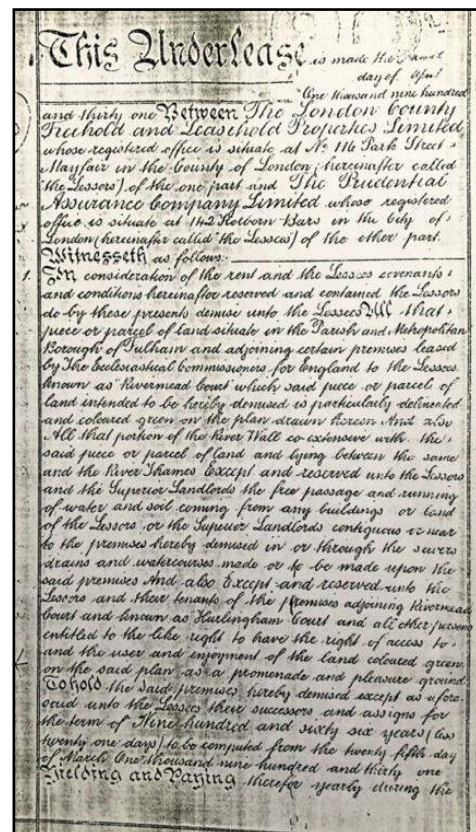 This Underlease is made the
day of April
One thousand nine hundred
and thirty one Between The London County
Freehold and Leasehold Properties Limited
whose registered office is situate at No 116 Park Street
Mayfair in the County of London (hereinafter called
the Lessors) of the one part and The Prudential
Assurance Company Limited whose registered
office is situate at 142 Holborn Bars in the City of
London (hereinafter called the Lessees) of the other part.
Witnesseth as follows:-
1. In consideration of the rent and the Lessees covenants
and conditions hereinafter reserved and contained the Lessors
do by these presents demise unto the Lessees All that
piece or parcel of land situate in the Parish and Metropolitan
Borough of Fulham and adjoining certain premises leased
by The Ecclesiastical Commissioners for England to the Lessees
known as Rivermead Court which said piece or parcel of
land intended to be hereby demised is particularly delineated
and coloured green on the plan drawn hereon And also
All that portion of the River Wall co-extensive with the
said piece or parcel of land and lying between the same
and the River Thames Except and reserved unto the Lessors
and the Superior Landlords the free passage and running
of water and soil coming from any buildings or land
of the Lessors or the Superior Landlords contiguous or near
to the premises hereby demised in or through the sewers
drains and watercourses made or to be made upon the
said premises And also Except and reserved unto the
Lessors and their tenants of the premises adjoining Rivermead
Court and known as Hurlingham Court and all other persons
entitled to the like right to have the right of access to
and the user and enjoyment of the land coloured green
on the said plan as a promenade and pleasure ground
To hold the said premises hereby demised except as afore
said unto the Lessees their successors and assigns for
the term of Nine hundred and sixty six years (less
twenty one days) to be computed from the twenty fifth day
of March One thousand nine hundred and thirty one
Yielding and Paying therefor yearly during the